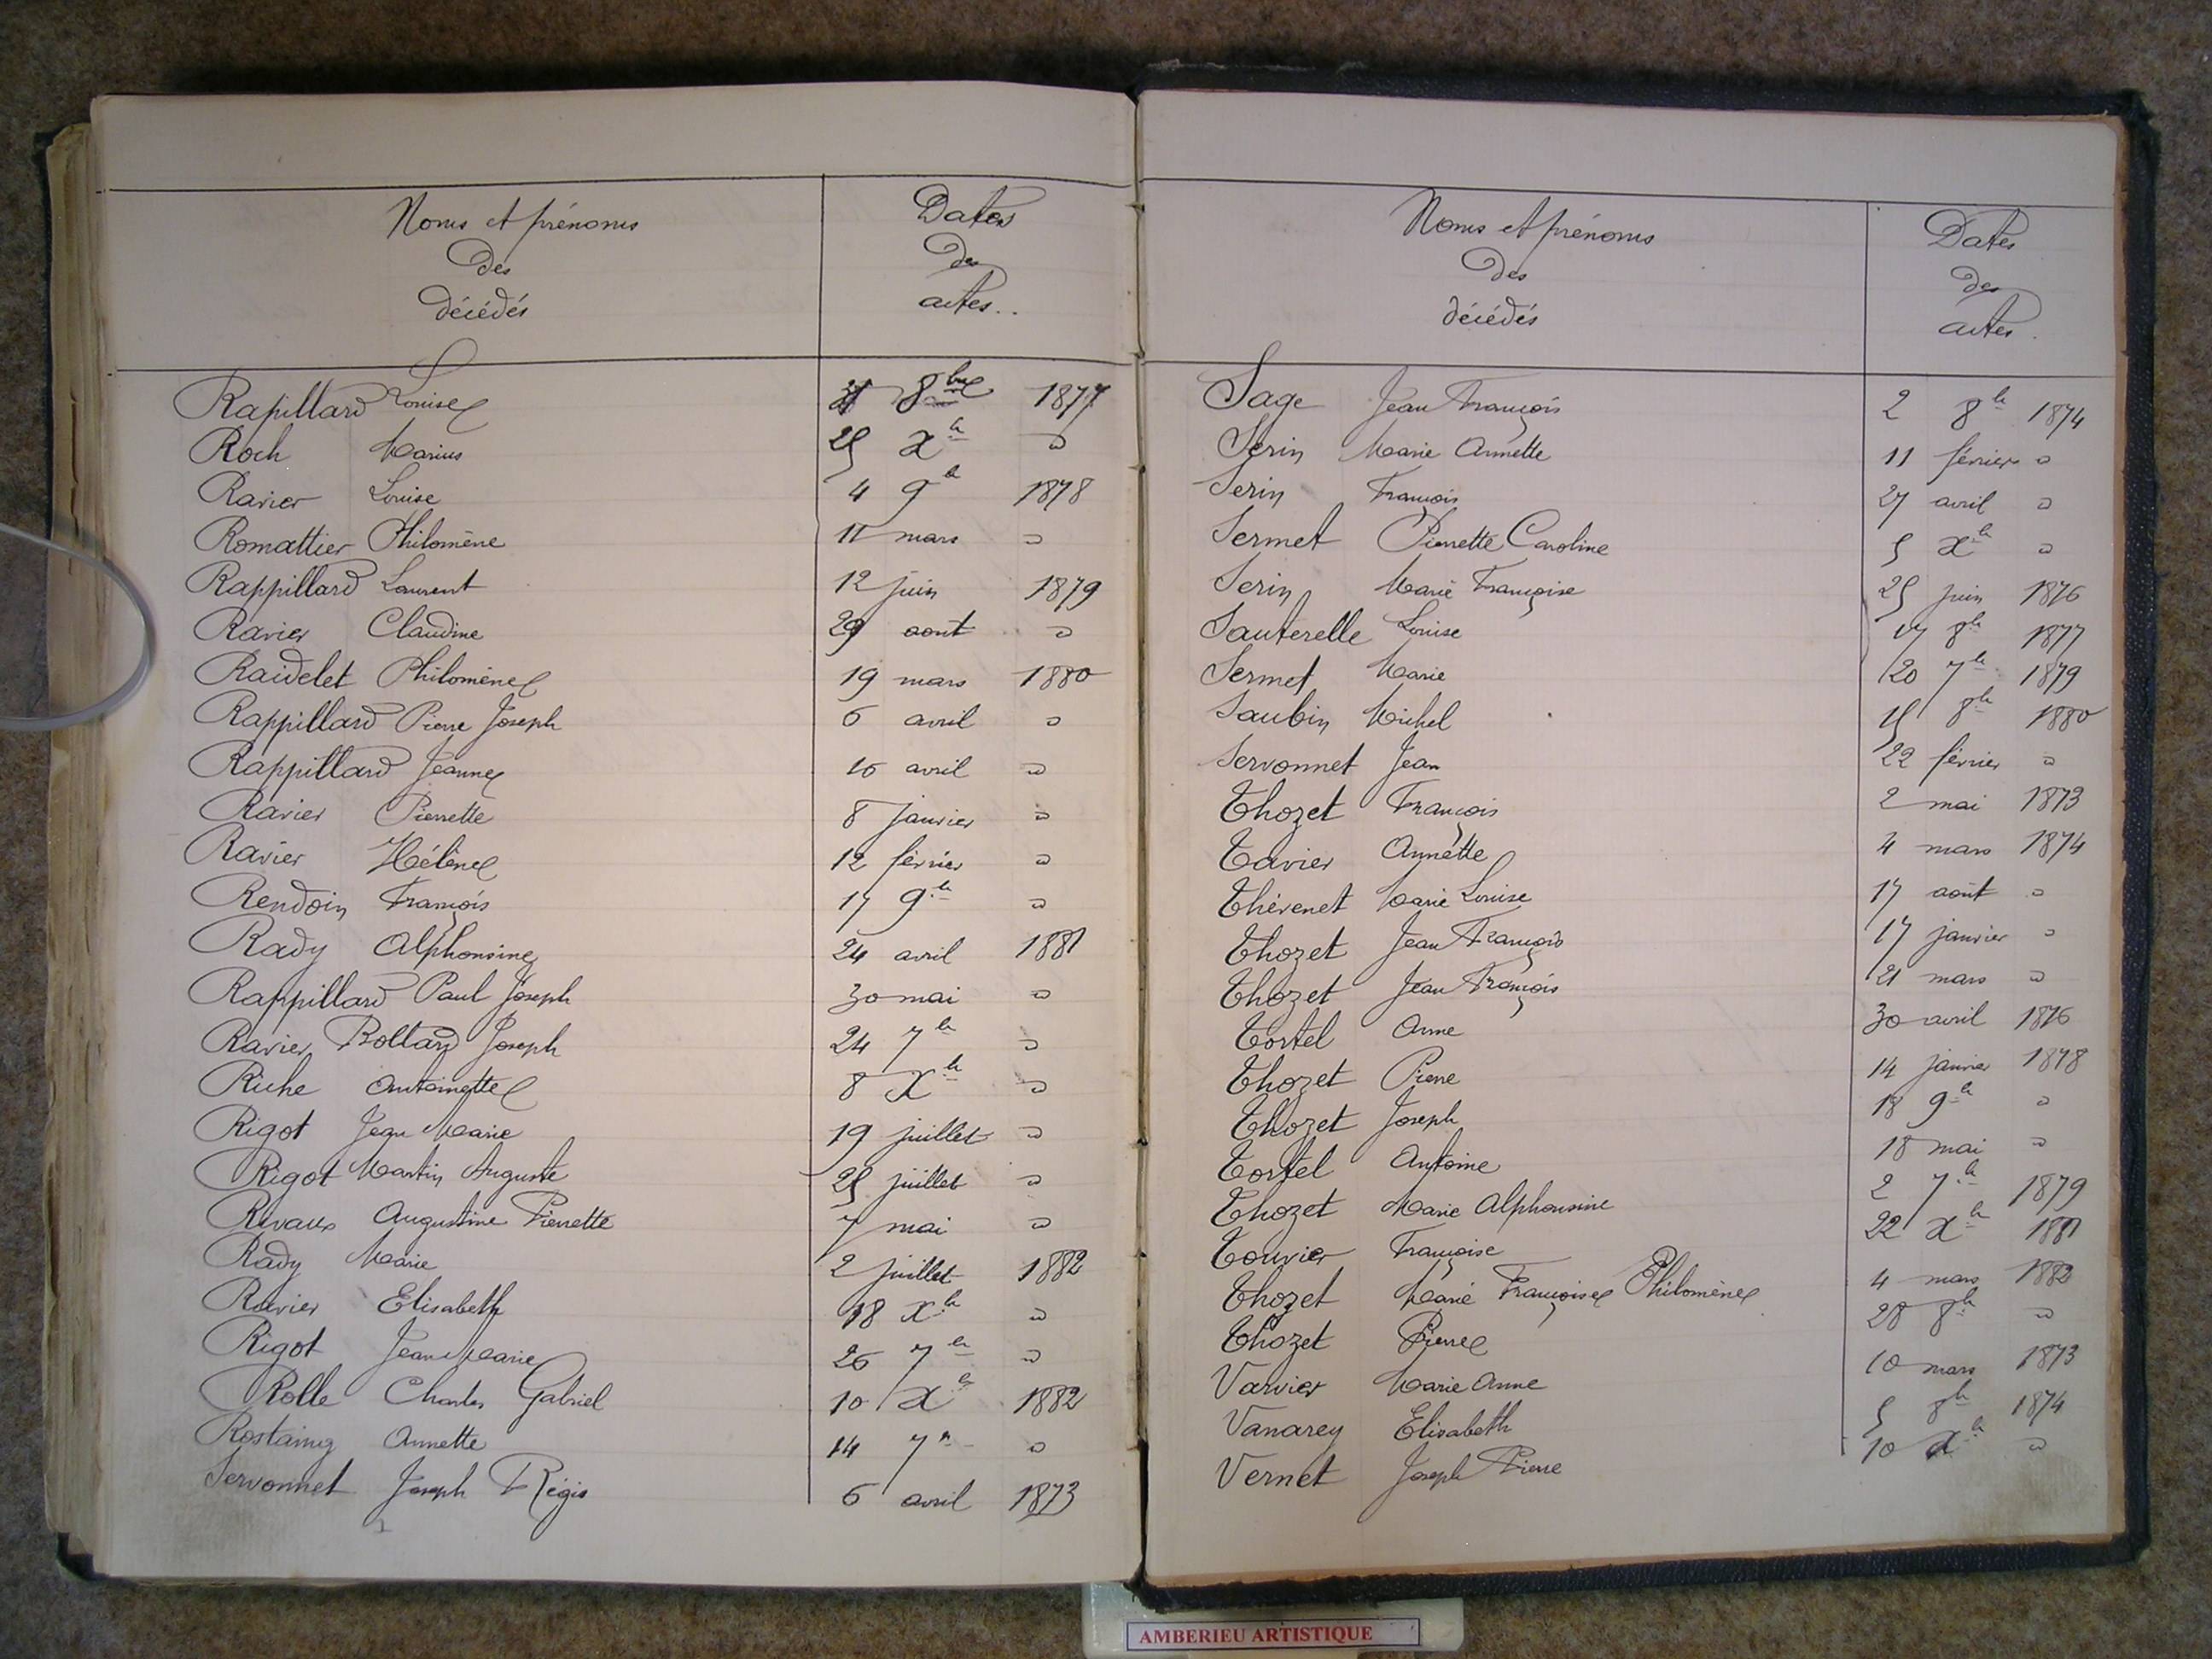 Noms et prénoms
des
décédés
Dates
des
actes..
Rapillard Louise 31 8bre 1877
Roch Marius 25 Xbre "
Ravier Louise 4 9bre 1878
Romattier Philomène 11 mars "
Rappillard Laurent 12 juin 1879
Ravier Claudine 29 août "
Raidelet Philomène 19 mars 1880
Rappillard Pierre Joseph 6 avril "
Rappillard Jeanne 16 avril "
Ravier Pierrette 8 janvier "
Ravier Hélène 12 février "
Rendoin François 17 9bre "
Rady Alphonsine 24 avril 1881
Rappillard Paul Joseph 30 mai "
Ravier Bollard Joseph 24 7bre "
Riche Antoinette 8 Xbre "
Rigot Jean Marie 19 juillet "
Rigot Martin Auguste 25 juillet "
Rivaux Augustine Pierrette 7 mai "
Rady Marie 2 juillet 1882
Ravier Elisabeth 18 Xbre "
Rigot Jean Marie 26 7bre "
Rolle Charles Gabriel 10 Xbre 1882
Rostaing Annette 14 7bre "
Servonnet Joseph Régis 6 avril 1873
Noms et prénoms
des
décédés
Dates
des
actes.
Sage Jean François 2 8bre 1874
Serin Marie Annette 11 février "
Serin François 27 avril "
Sermet Pierrette Caroline 5 Xbre "
Serin Marie Françoise 25 juin 1876
Sauterelle Louise 17 8bre 1877
Sermet Marie 20 7bre 1879
Saubin Michel 15 8bre 1880
Servonnet Jean 22 février "
Thozet François 2 mai 1873
Tavier Annette 4 mars 1874
Thévenet Marie Louise 17 août "
Thozet Jean François 17 janvier "
Thozet Jean François 21 mars "
Tortel Anne 30 avril 1876
Thozet Pierre 14 janvier 1878
Thozet Joseph 18 9bre "
Tortel Antoine 18 mai "
Thozet Marie Alphonsine 2 7bre 1879
Touvier Françoise 22 Xbre 1881
Thozet Marie Françoise Philomène 4 mars 1882
Thozet Pierre 28 8bre "
Varvier Marie Anne 10 mars 1873
Vanarey Elisabeth 5 8bre 1874
Vernet Joseph Pierre 10 Xbre "
AMBERIEU ARTISTIQUE